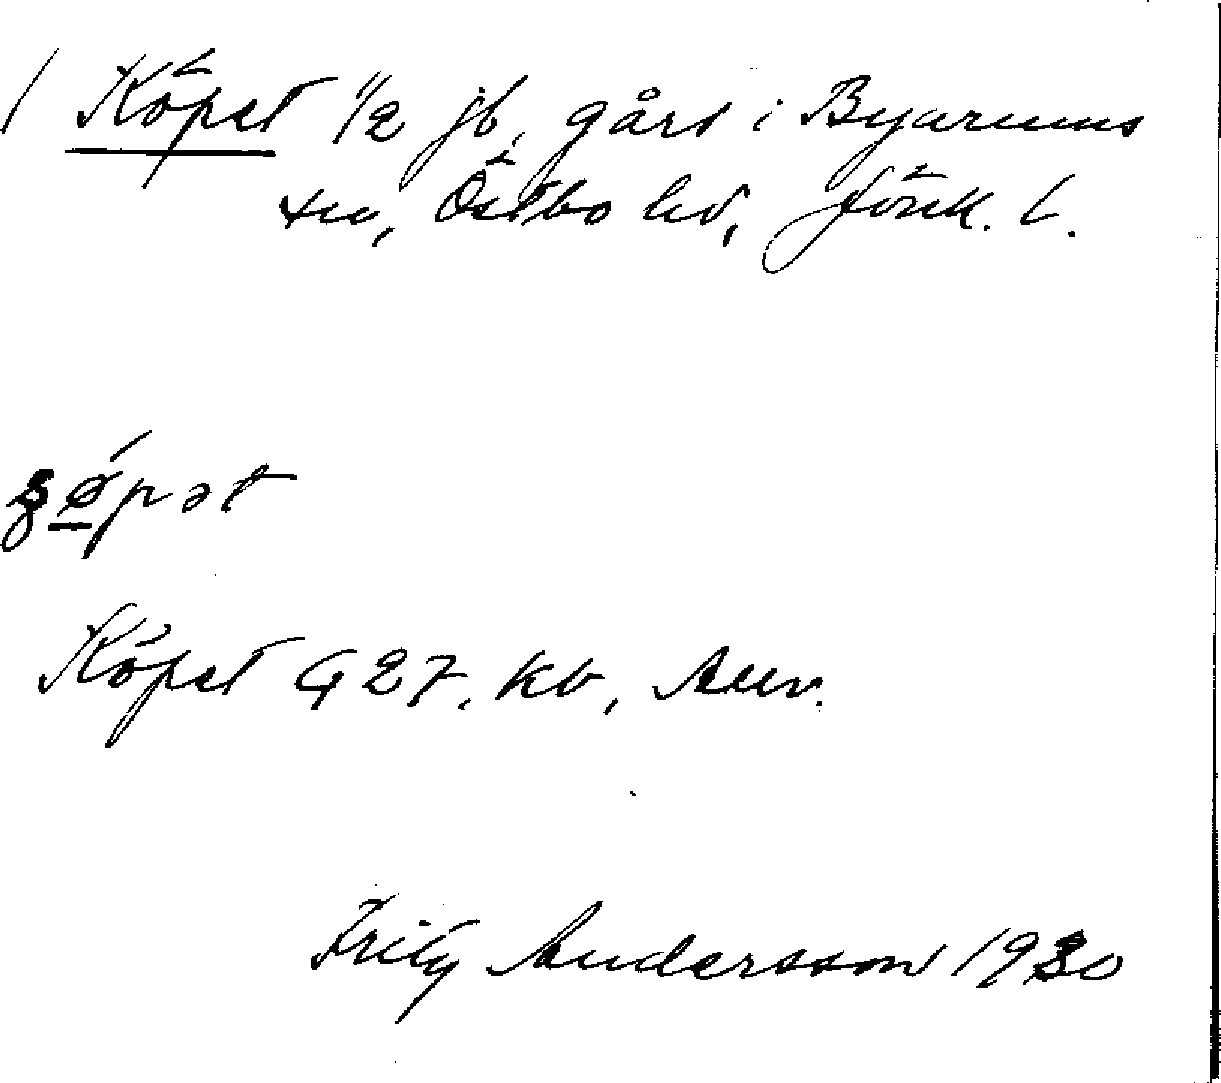 / Köpet 1/2 jb. gård i Byarums
sn, Östbo hd, Jönk. l.
ʒøpət
Köpet G 27. kb, Auv.
Frity Andersson 1930